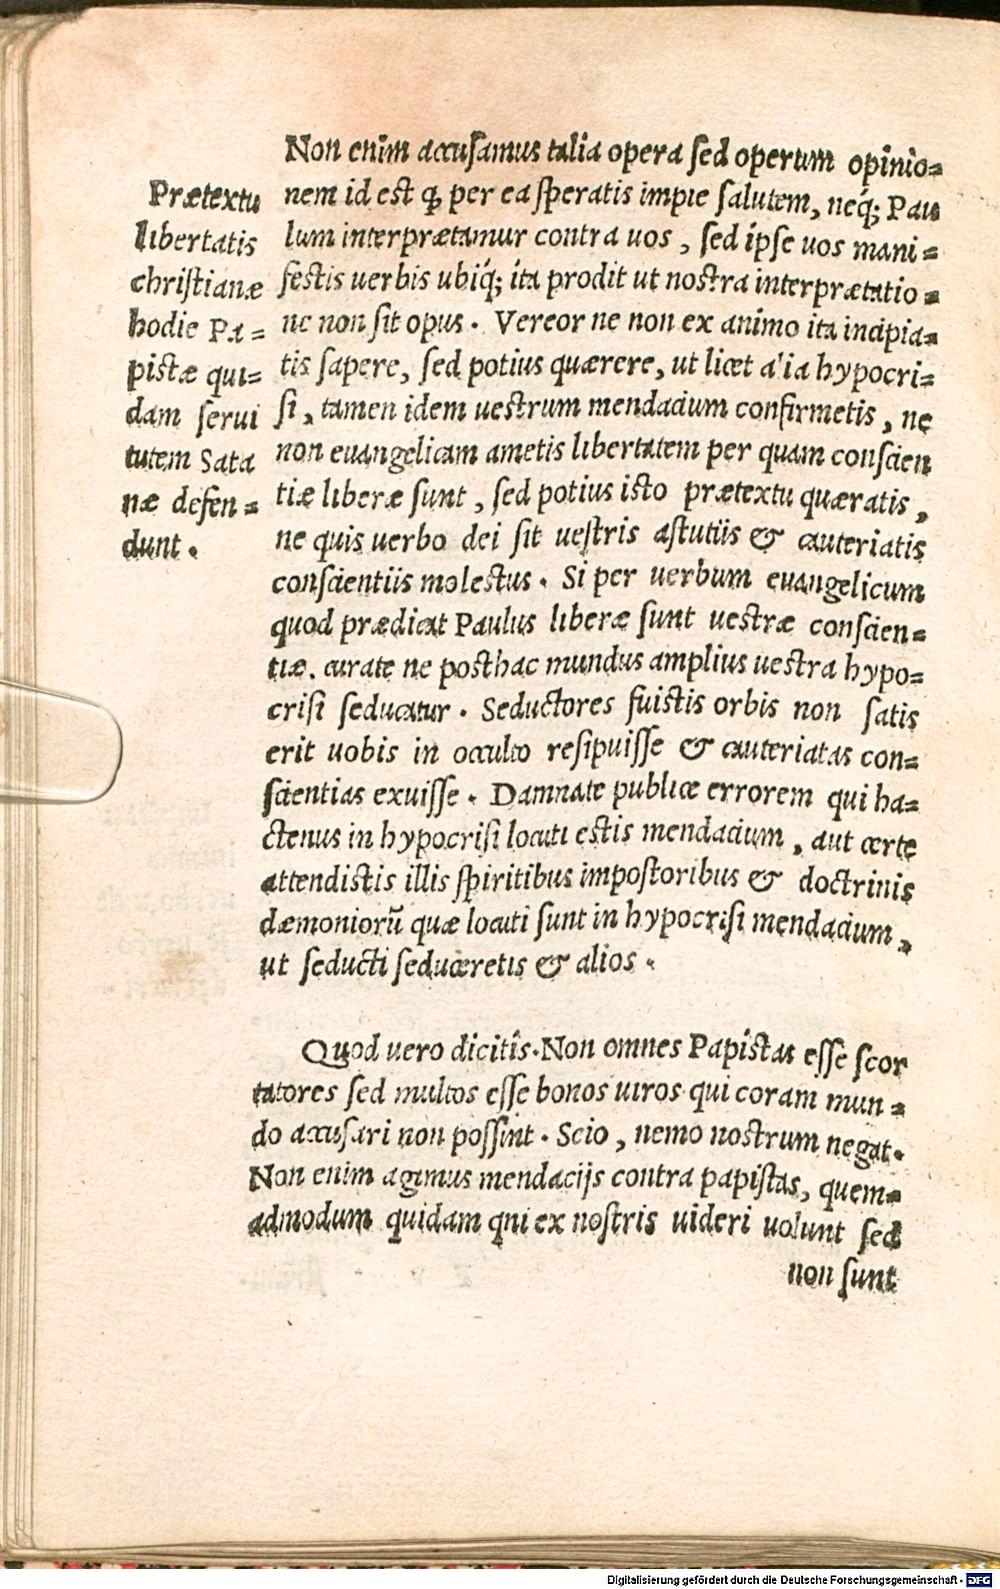 Prætextu
libertatis
christianæ
hodie Pa=
pistæ qui=
dam serui
tutem Sata
næ defen=
dunt.
Non enim accusamus talia opera sed operum opinio=
nem id est ꝙ per ea speratis impie salutem, neq́; Pau
lum interprætamur contra uos, sed ipse uos mani=
festis uerbis ubiq́; ita prodit ut nostra interprætatio=
ne non sit opus. Vereor ne non ex animo ita incipia=
tis sapere, sed potius quærere, ut licet alia hypocri=
si, tamen idem uestrum mendacium confirmetis, ne
non euangelicam ametis libertatem per quam conscien
tiæ liberæ sunt, sed potius isto prætextu quæratis,
ne quis uerbo dei sit uestris astutiis & cauteriatis
conscientiis molestus. Si per uerbum euangelicum
quod prædicat Paulus liberæ sunt uestræ conscien=
tiæ. curate ne posthac mundus amplius uestra hypo=
crisi seducatur. Seductores fuistis orbis non satis
erit uobis in occulto resipuisse & cauteriatas con=
scientias exuisse. Damnate publice errorem qui ha=
ctenus in hypocrisi locuti estis mendacium, aut certe
attendistis illis spiritibus impostoribus & doctrinis
dæmoniorū quæ locuti sunt in hypocrisi mendacium,
ut seducti seduceretis & alios.
Quod uero dicitis. Non omnes Papistas esse scor
tatores sed multos esse bonos uiros qui coram mun=
do accusari non possint. Scio, nemo nostrum negat.
Non enim agimus mendacijs contra papistas, quem=
admodum quidam qni ex nostris uideri uolunt sed
non sunt
Digitalisierung gefördert durch die Deutsche Forschungsgemeinschaft - DFG